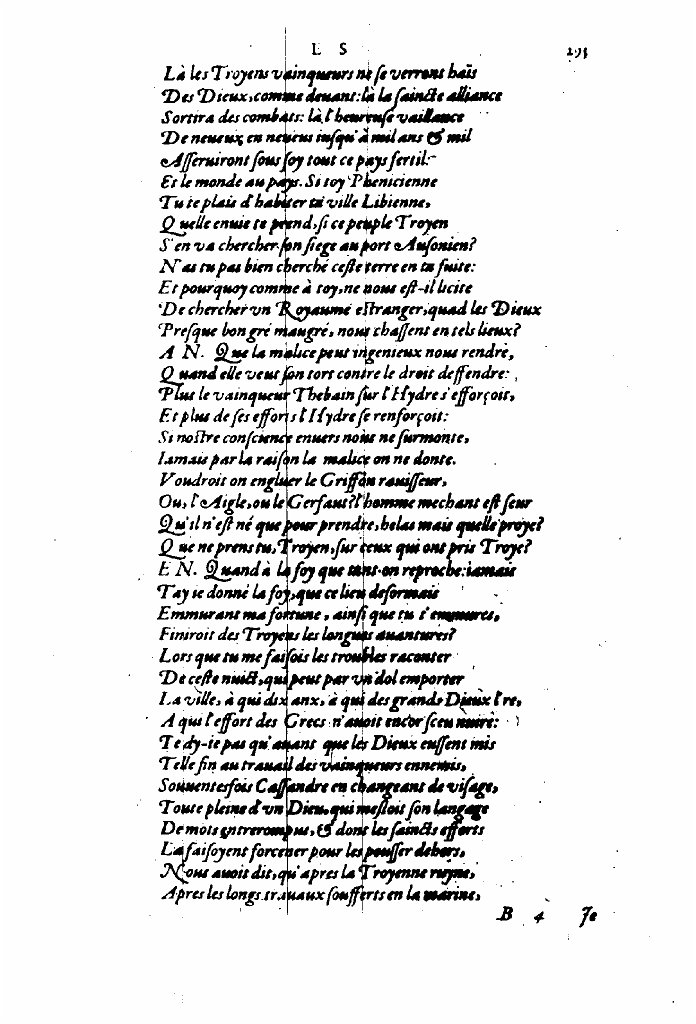 L S 293
Là les Troyens vainqueurs ne se verront haïs
Des Dieux, comme deuant: là la saincte alliance
Sortira des combats: là l'heureuse vaillance
De neueux en neueus iusqu'à mil ans & mil
Asseruiront sous soy tout ce pays fertil:
Et le monde au pays. Si toy Phenicienne
Tu te plais d'habiter ta ville Libienne,
Quelle enuie te prend, si ce peuple Troyen
S'en va chercher son siege au port Ausonien?
N'as tu pas bien cherché ceste terre en ta fuite:
Et pourquoy comme à toy, ne nous est-il licite
De chercher vn Royaume estranger, quãd les Dieux
Presque bon gré maugré, nous chassent en tels lieux?
A N. Que la malice peut ingenieux nous rendre,
Quand elle veut son tort contre le droit deffendre:
Plus le vainqueur Thebain sur l'Hydre s'efforçoit,
Et plus de ses efforts l'Hydre se renforçoit:
Si nostre conscience enuers nous ne surmonte,
Iamais par la raison la malice on ne donte.
Voudroit on engluer le Griffon rauisseur,
Ou, l'Aigle, ou le Gerfaut? l'homme mechant est seur
Qu'il n'est né que pour prendre, helas mais quelle proye?
Que ne prens tu, Troyen, sur ceux qui ont pris Troye?
E N. Quand à la foy que tant on reproche: iamais
T'ay ie donné la foy, que ce lieu desormais
Emmurant ma fortune, ainsi que tu t'emmures,
Finiroit des Troyens les longues auantures?
Lors que tu me faisois les troubles raconter
De ceste nuict, qui peut par vn dol emporter
La ville, à qui dix anx, à qui des grands Dieux l'ire,
A qui l'effort des Grecs n'auoit encor sceu nuire:
Te dy-ie pas qu'auant que les Dieux eussent mis
Telle fin au trauail des vainqueurs ennemis,
Souuentesfois Cassandre en changeant de visage,
Toute pleine d'vn Dieu, qui mesloit son langage
De mots entrerompus, & dont les saincts efforts
La faisoyent forcener pour les pousser dehors,
Nous auoit dit, qu'apres la Troyenne ruyne,
Apres les longs trauaux soufferts en la marine,
B 4 Ie